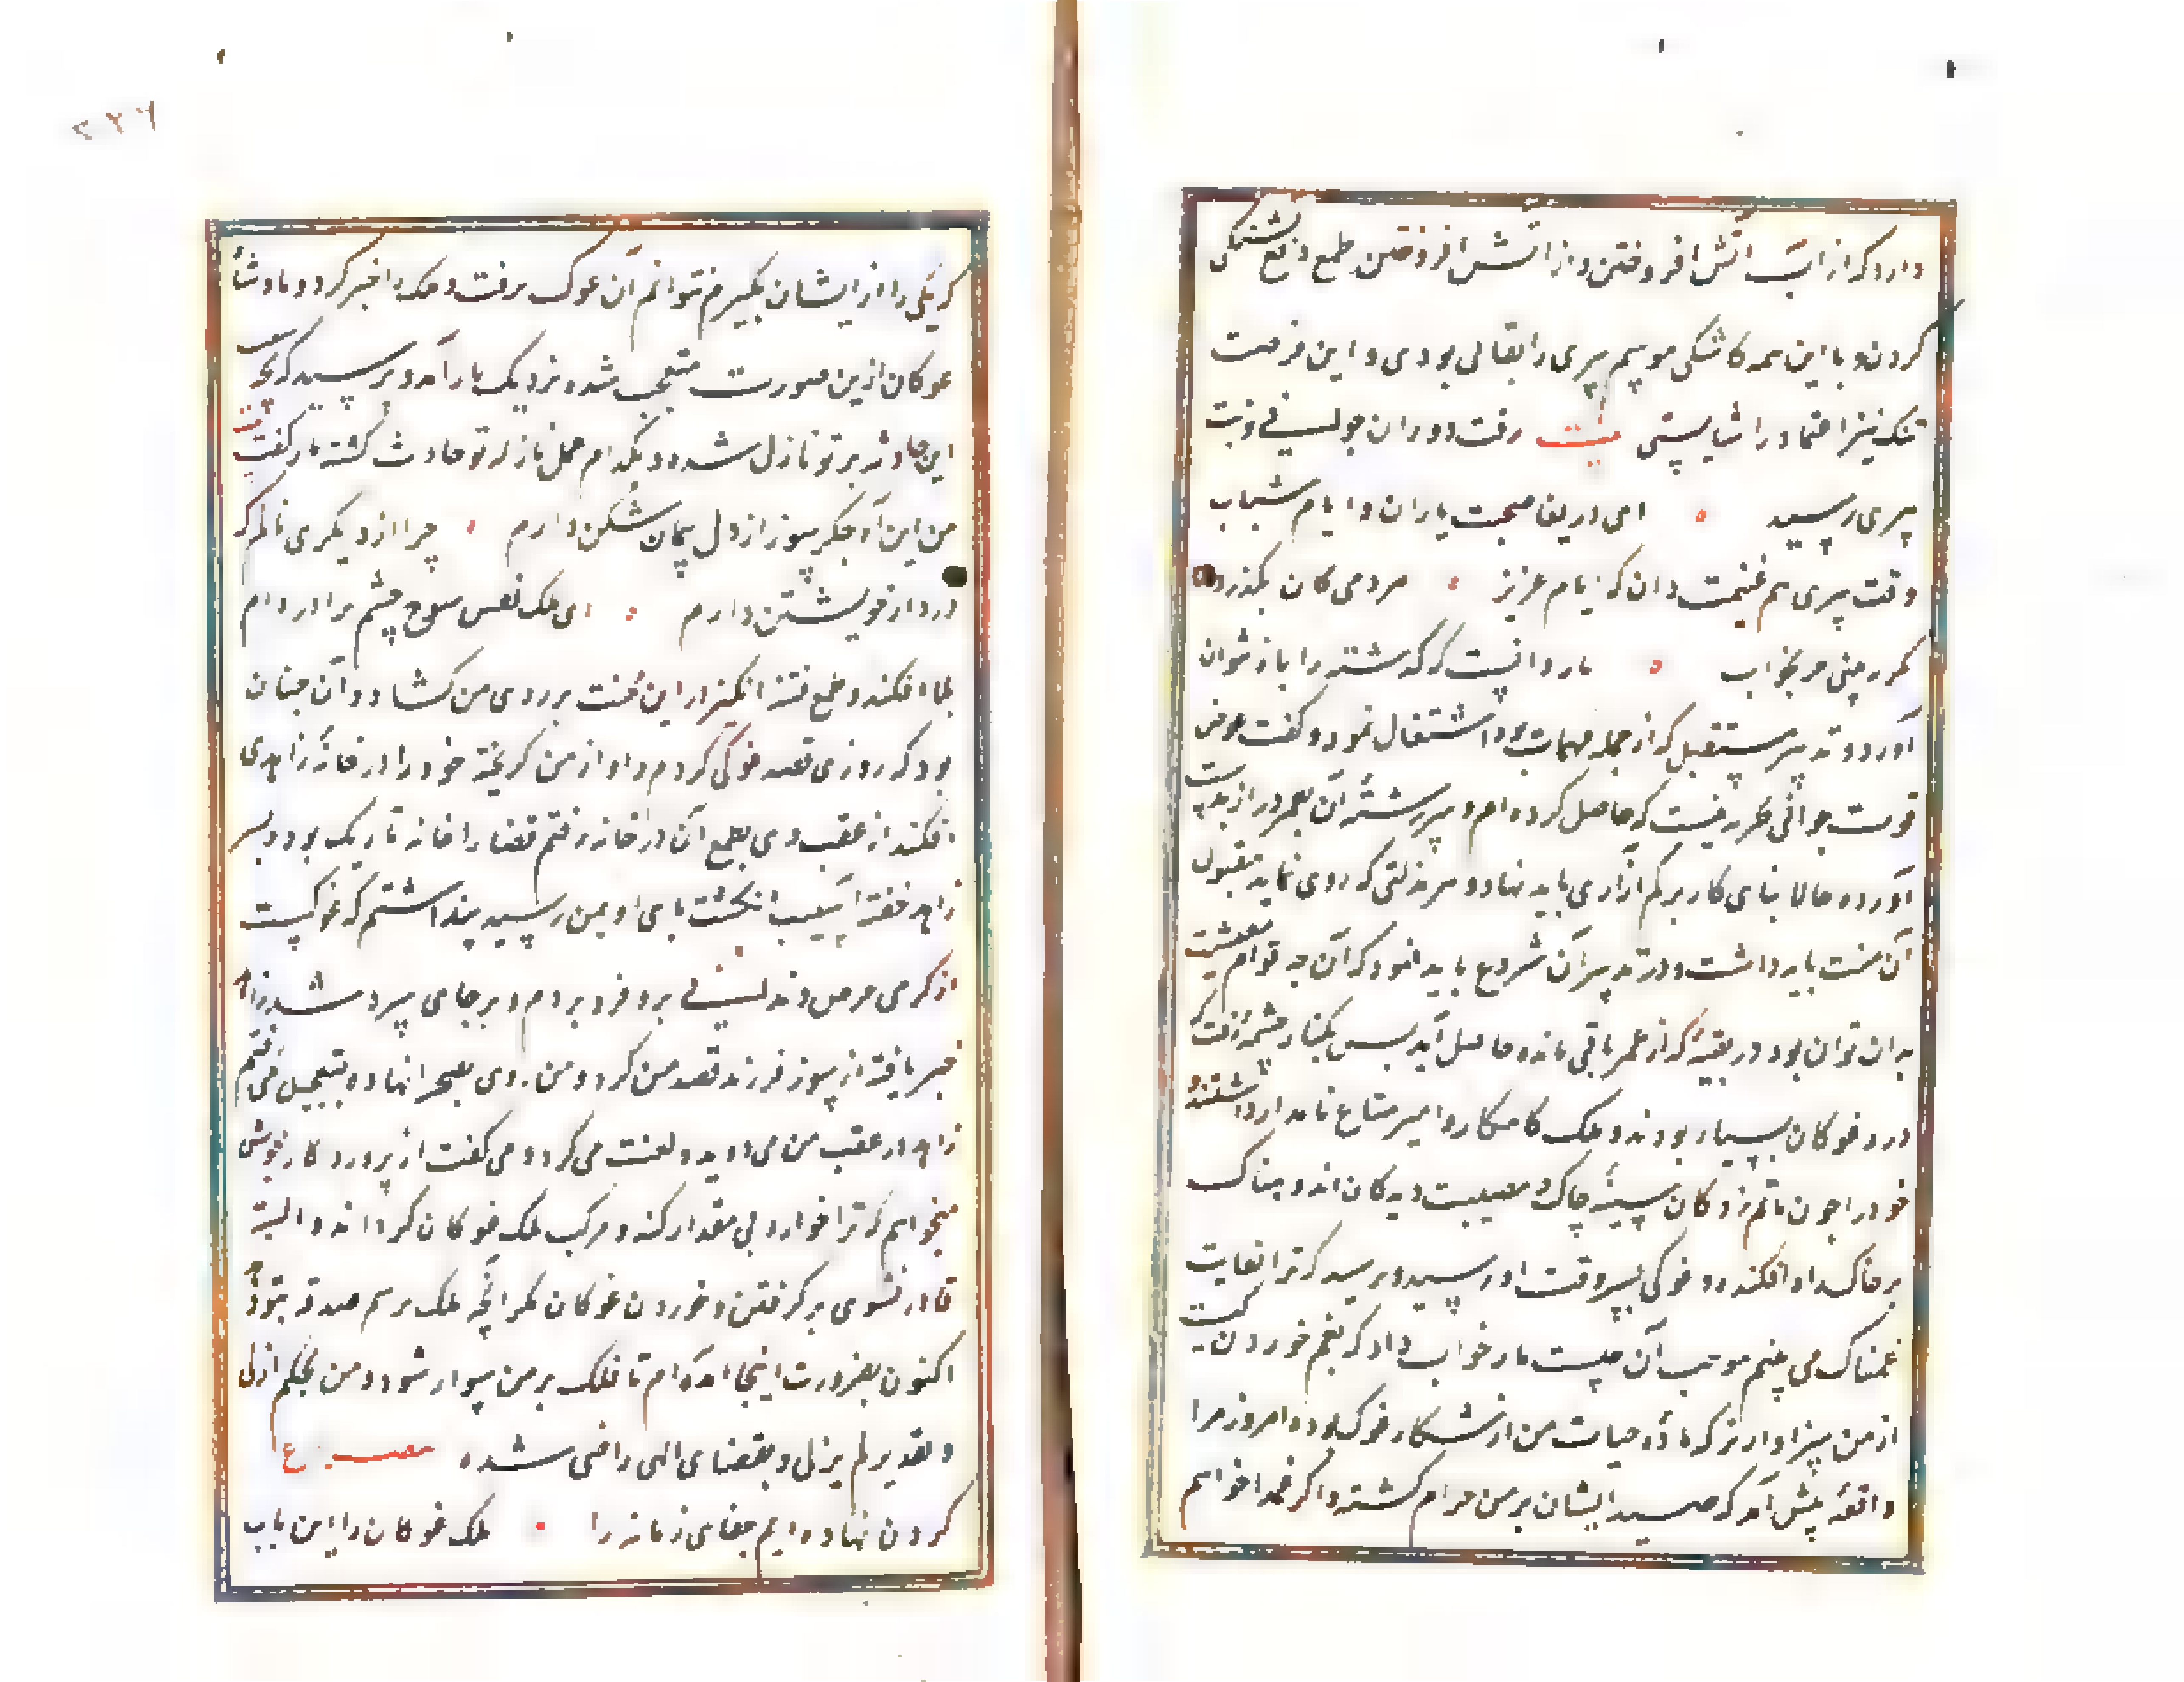 دارد که از آب آتش افروختن و از آتش افروختن طمع دفع تشنگی
کردن و با این همه کاشکی موسم پیری را بقائی بودی و این فرصت
تنک نیز اعتماد را شایستی بیت رفت دوران جوانی نوبت
پیری رسید ای دریغا صحبت یاران و ایام شباب
وقت پیری هم غنیمت دان که ایام عزیز مردمی کان بگذرد
بخواب مار دانست که گذشته را باز نتوان
آورد و تدبیر مستقبل که از جمله مهمات بود اشتغال نمود و گفت عوض
قوت جوانی تجربه ایست که حاصل کرده ام و سررشته آن بعمر دراز بدست
آورده حالا بنای کار بر کم آزاری باید نهاد و هر مذلتی که روی نماید مقبول
آن منت باید داشت و در تدبیر آن شروع باید نمود که آن چه قوام معیشت
بدان توان بود در بقیه که از عمر باقی مانده حاصل آید پس بکنار چشمه رفت که
درو غوکان بسیار بودند و ملک کامکار و امیر مطاع نامدار داشتند و
خود را چون ماتم زدگان سینه چاک و مصیبت دیدگان اندوهناک
بر خاک راه افکند و غوکی بسر وقت او رسید و پرسید که ترا بغایت
غمناک می بینم موجب آن چیست مار جواب داد که بغم خوردن کیست
از من سزاوارتر که ماده حیات من از شکار غوک بود و امروز مرا
واقعه پیش آمد که صید ایشان بر من حرام گشته و اگر عمدا خواهم
که یکی را از ایشان بگیرم نتوانم آن غوک برفت و ملک را خبر کرد و پادشاه
غوکان ازین صورت متعجب شده نزدیک مار آمد و پرسید که بچه سبب
این حادثه بر تو نازل شده و بکدام عمل نازله تو حادث گشته مار گفت
من این آه جگرسوز از دل پیمان شکن دارم چرا از دیگری نالم که
درد از خویشتن دارم ای ملک نفس چشم مرا در دام
بلا افکند و طمع فتنه انگیز در این محنت بر روی من گشاد و آن چنان
بود که روزی قصد غوکی کردم و او از من گریخته خود را در خانه زاهدی
افکند از عقب وی بطمع آن در خانه رفتم قضا را خانه تاریک بود و پسر
زاهد خفته آسیب انگشت پای او بمن رسید پنداشتم که غوکیست
از گرمی حرص دندانی برو فرو بردم و بر جای سرد شد زاهد
خبر یافته از سوز فرزند قصد من کرد و من روی بصحرا نهاده بتعجیل می رفتم
زاهد در عقب من می دوید و لعنت می کرد و می گفت از پروردگار خویش
میخواهم که ترا خوار و بی مقدار کند و مرکب ملک غوکان گرداند و البته
قادر نشوی بر گرفتن و خوردن غوکان مگر آنچه ملک برسم صدقه بتو دهد
اکنون بضرورت اینجا آمده ام تا ملک بر من سوار شود و من بحکم ازلی
و تقدیر لم یزلی و بقضای الهی راضی شده مصرع
گردن نهاده ایم جفای زمانه را ملک غوکان را این باب